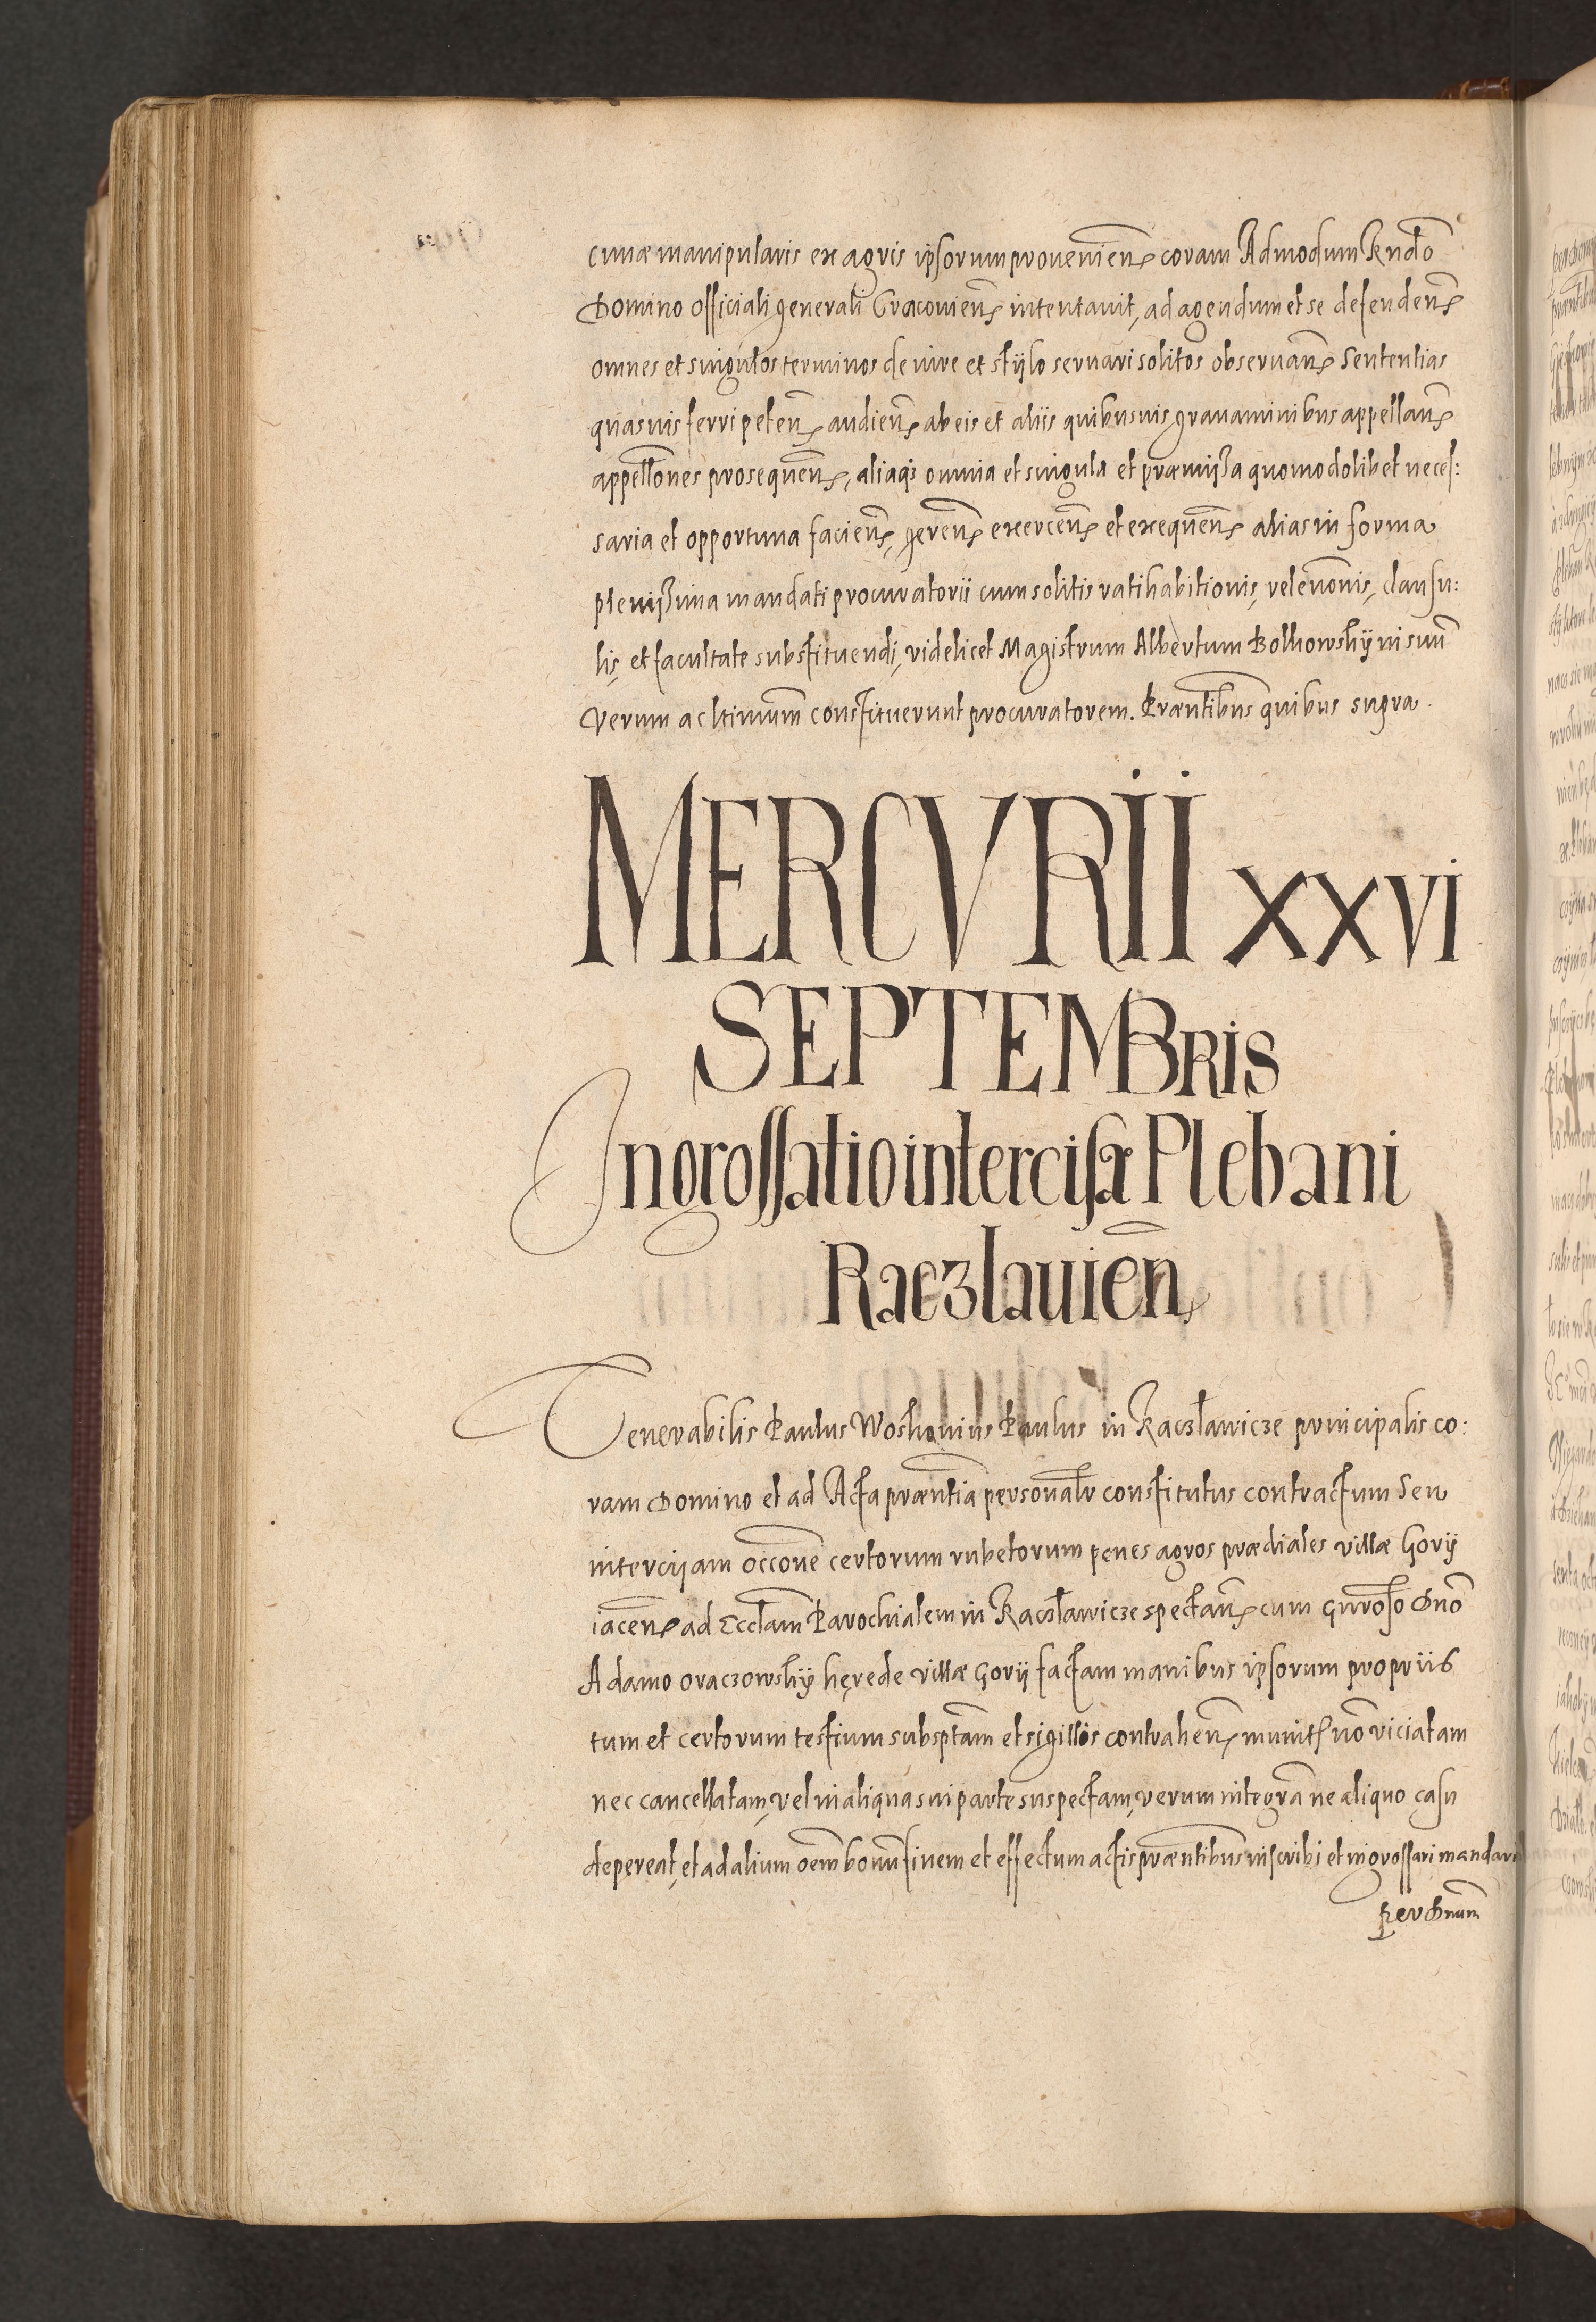 cimæ manipularis ex agris ipsorum proueniēn coram Admodum Rndō
Domino Officiali generali Cracouien̄ intentauit, ad agendum et se defenden̄
omnes et singulos terminos de iure et stÿlo seruari solitos obseruan̄ Sententias
quasuis ferri peten̄ audien̄ ab eis et aliis quibusuis grauaminibus appellan̄
appellōnes prosequen̄, aliaqꝫ omnia et singula et præmissa quomodolibet neces:
saria et opportuna facien̄, geren̄ exercen̄ et exequen̄ alias in forma
plenissima mandati procuratorii cum solitis ratihabitionis, releuōnis, clausu:
lis, et facultate substituendi, videlicet Magistrum Albertum Bolhowskÿ in suū
verum ac ltimūm constituerunt procuratorem. Præntibus quibus supra.
MERCVRII XXVI
SEPTEMBRIS
Ingrossatio intercisæ Plebani
Raczlauien̄
Venerabilis Paulus Woskonius Paulus in Raczławicze principalis co:
ram Domino et ad Acta præntia personalr constitutus contractum Seu
intercisam occōne certorum rubetorum penes agros prædiales villæ Gorÿ
iacen̄ ad Eccłam Parochialem in Raczławicze spectan̄ cum Gnroso Dnō
Adamo Oraczowskÿ hęrede villæ Gorÿ factam manibus ipsorum propriis
tum et certorum testium subsptam et sigillis contrahen̄ munit nō viciatam
nec cancellatam, vel in aliqua sui parte suspectam, verum integrā ne aliquo casu
depereat, et ad alium oēm bonū finem et effectum actis præntibus inscribi et ingrossari mandari
Per Dnum